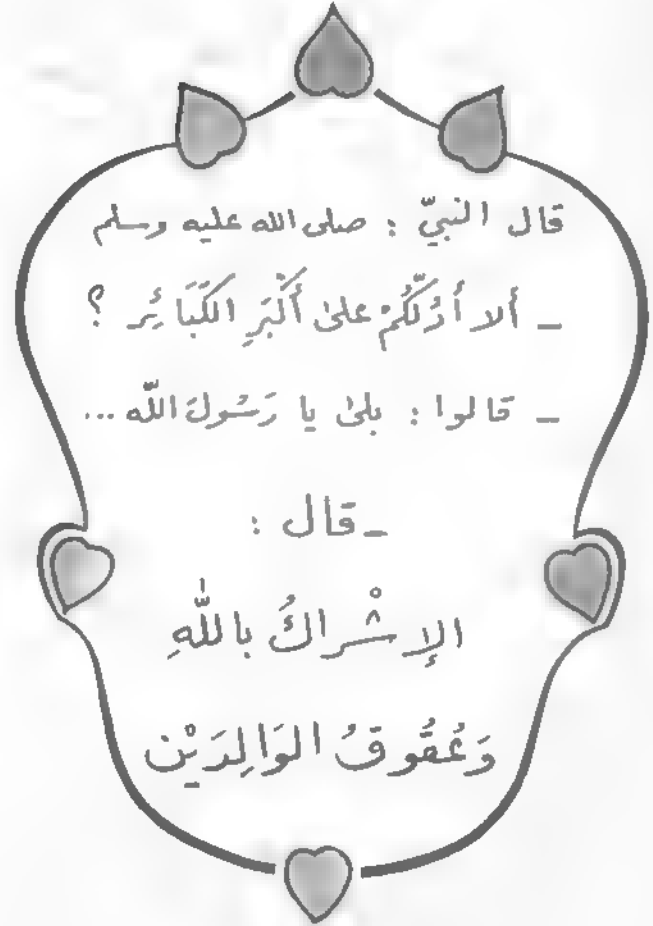 قال النبيّ : صلى الله عليه وسلم
ـ ألا أدُلّكُمْ علىٰ أَكْبَرِ الكَبَائِر ؟
ـ قالوا : بلىٰ يا رَسُولَ اللّه ...
ـ قال :
الإِشْراكُ باللّٰهِ
وَعُقُوقُ الوَالِدَيْن